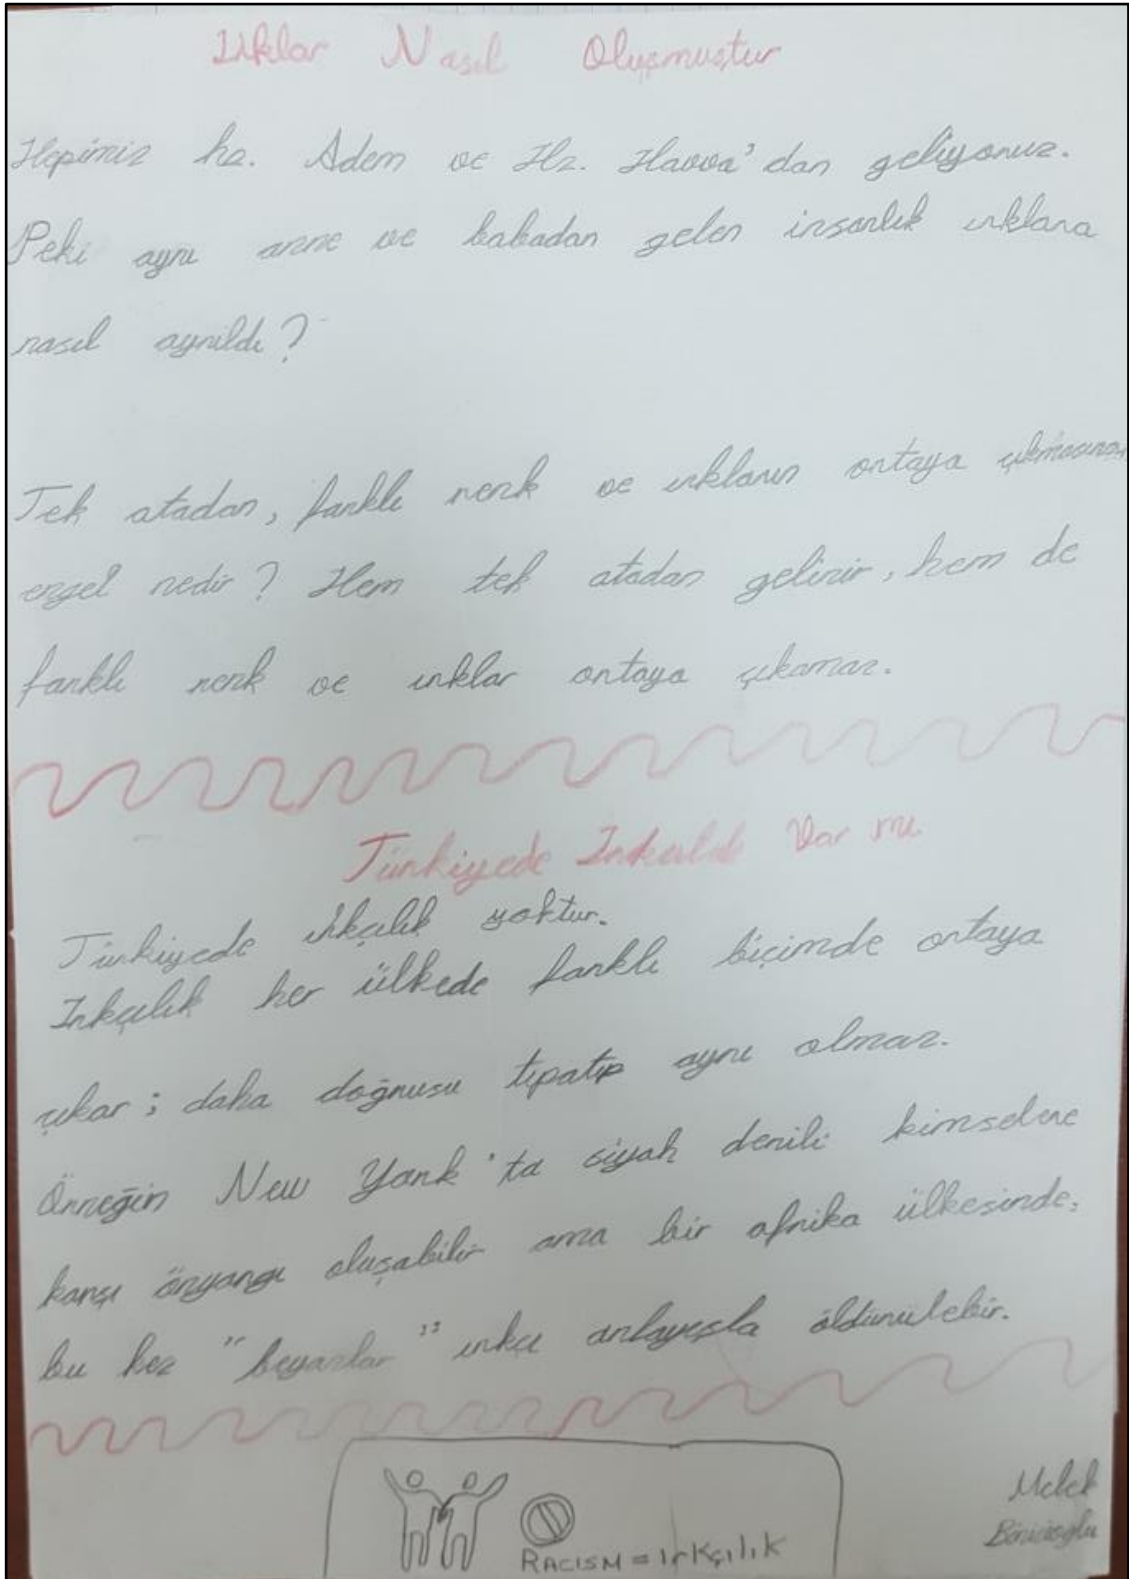 Irklar Nasıl Oluşmuştur
Hepimiz hz. Adem ve Hz. Havva'dan geliyoruz.
Peki aynı anne ve babadan gelen insanlık ırklara
nasıl ayrıldı?
Tek atadan, farklı renk ve ırkların ortaya çıkmasına
engel nedir? Hem tek atadan gelinir, hem de
farklı renk ve ırklar ortaya çıkamaz.
Türkiyede Irkçılık Var mı
Türkiyede ırkçılık yoktur.
Irkçılık her ülkede farklı biçimde ortaya
çıkar; daha doğrusu tıpatıp aynı olmaz.
Örneğin New York'ta siyah derili kimselere
karşı önyargı oluşabilir ama bir afrika ülkesinde;
bu kez "beyazlar" ırkçı anlayışla öldürülebir.
RACISM = ırkçılık
Melek